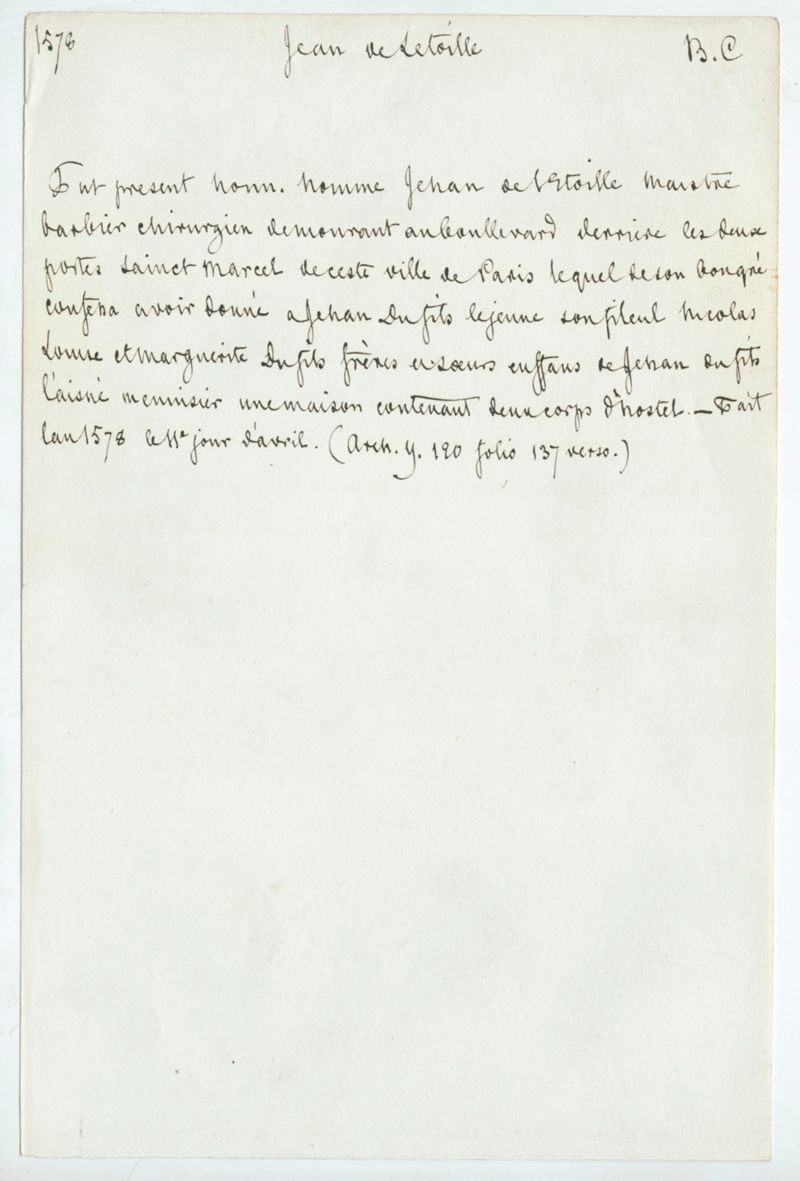 1578 Jean de Letoille B.C
Fut present honn. homme Jehan de l'Etoille maistre
barbier chirurgien demourant au boullevard derriere les deux
portes Sainct Marcel de ceste ville de Paris lequel de son bon gré
confessa avoir donné a Jehan Dufits le jeune son fileul Nicolas
Louise et Marguerite Dufits frères et soeurs enffans de Jehan Dufits
l'aisné menuisier une maison contenant deux corps d'hostel. — Fait
lan 1578 le 11e jour d'avril. (Arch. Y. 120 folio 137 verso.)